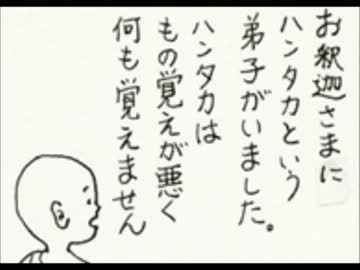 お釈迦さまに
ハンタカという
弟子がいました。
ハンタカは
もの覚えが悪く
何も覚えません